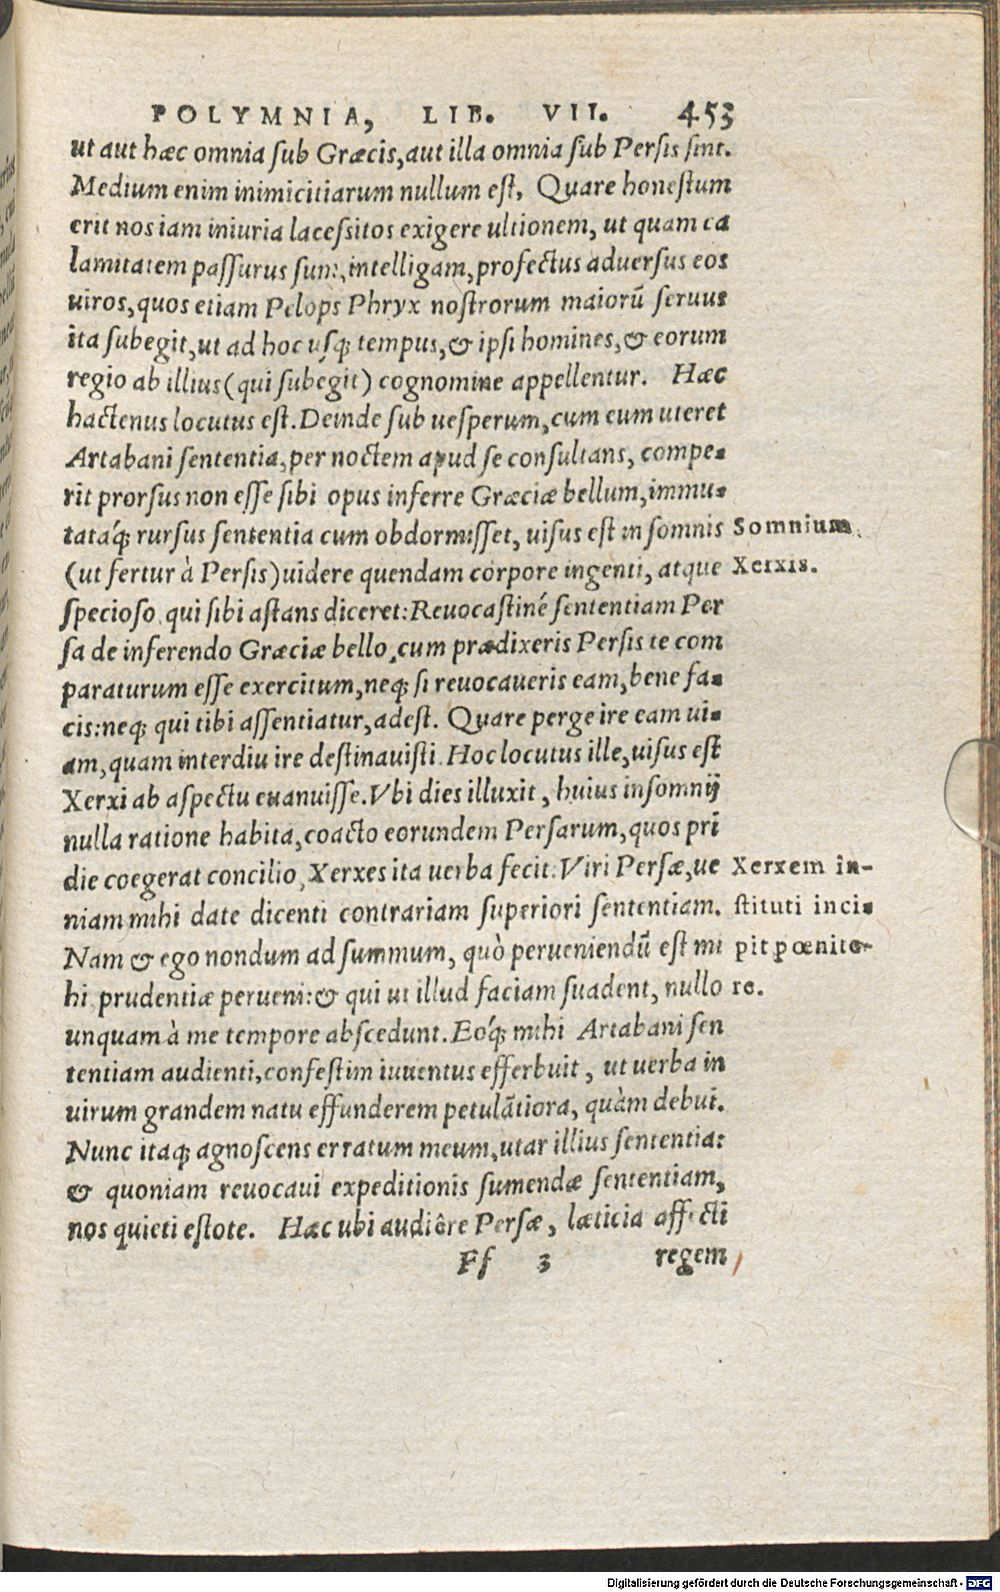 POLYMNIA, LIB. VII. 453
ut aut hæc omnia sub Græcis, aut illa omnia sub Persis sint.
Medium enim inimicitiarum nullum est, Quare honestum
erit nos iam iniuria lacessitos exigere ultionem, ut quam ca
lamitatem passurus sum, intelligam, profectus adversus eos
uiros, quos etiam Pelops Phryx nostrorum maiorũ seruus
ita subegit, ut ad hoc usq; tempus, & ipsi homines, & eorum
regio ab illius (qui subegit) cognomine appellentur. Hæc
hactenus locutus est. Deinde sub uesperum, cum eum uteret
Artabani sententia, per noctem apud se consultans, compe-
rit prorsus non esse sibi opus inferre Græciæ bellum, immu-
tatáq; rursus sententia cum obdormisset, uisus est in somnis
Somnium
(ut fertur à Persis) uidere quendam corpore ingenti, atque
Xerxis.
specioso qui sibi astans diceret: Reuocastiné sententiam Per
sa de inferendo Græciæ bello, cum prædixeris Persis te com
paraturum esse exercitum, neq; si reuocaueris eam, bene fa-
cis: neq; qui tibi assentiatur, adest. Quare perge ire eam ui-
am, quam interdiu ire destinauisti. Hoc locutus ille, uisus est
Xerxi ab aspectu euanuisse. Vbi dies illuxit, huius insomnij
nulla ratione habita, coacto eorundem Persarum, quos pri
die coegerat concilio, Xerxes ita uerba fecit: Viri Persæ, ue
Xerxem in-
niam mihi date dicenti contrariam superiori sententiam.
stituti inci-
Nam & ego nondum ad summum, quò perueniendũ est mi
pit pœnite-
hi prudentiæ perueni: & qui ut illud faciam suadent, nullo
re.
unquam à me tempore abscedunt. Eóq; mihi Artabani sen
tentiam audienti, confestim iuuentus efferbuit, ut uerba in
uirum grandem natu effunderem petulãtiora, quàm debui.
Nunc itaq; agnoscens erratum meum, utar illius sententia:
& quoniam reuocaui expeditionis sumendæ sententiam,
nos quieti estote. Hæc ubi audiêre Persæ, læticia affecti
Ff 3 regem
Digitalisierung gefördert durch die Deutsche Forschungsgemeinschaft - DFG